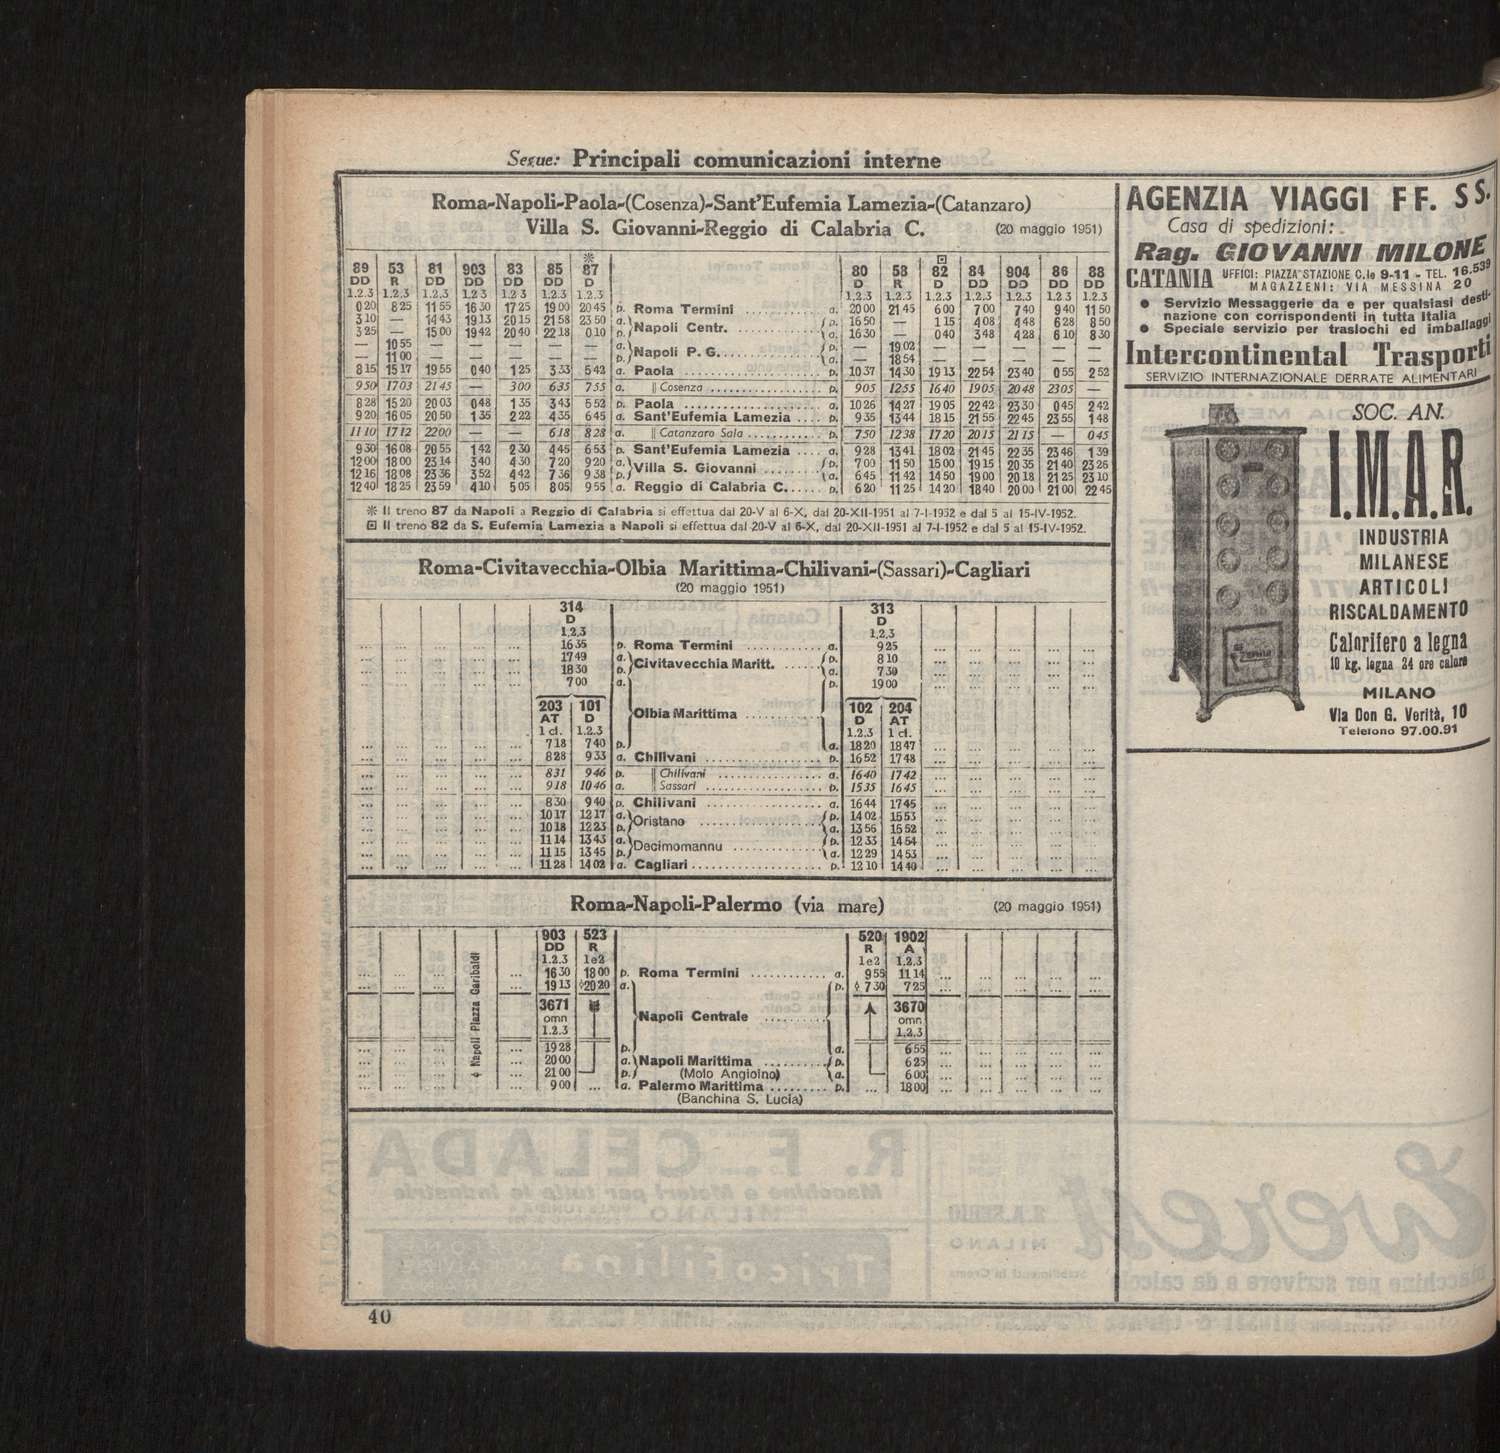 Segue: Principali comunicazioni interne
Roma-Napoli-Paola-(Cosenza)-Sant'Eufemia Lamezia-(Catanzaro)
Villa S. Giovanni-Reggio di Calabria C. (20 maggio 1951)
※ ⊡
89 53 81 903 83 85 87 80 58 82 84 904 86 88
DD R DD DD DD DD D D R D DD DD DD DD
1.2.3 1.2.3 1.2.3 1.2.3 1.2.3 1.2.3 1.2.3 1.2.3 1.2.3 1.2.3 1.2.3 1.2.3 1.2.3 1.2.3
0 20 8 25 11 55 16 30 17 25 19 00 20 45 p. Roma Termini a. 20 00 21 45 6 00 7 00 7 40 9 40 11 50
3 10 — 14 43 19 13 20 15 21 58 23 50 a. Napoli Centr. p. 16 50 — 1 15 4 08 4 48 6 28 8 50
3 25 — 15 00 19 42 20 40 22 18 0 10 p. a. 16 30 — 0 40 3 48 4 28 6 10 8 30
— 10 55 — — — — — a. Napoli P. G. p. — 19 02 — — — — —
— 11 00 — — — — — p. a. — 18 54 — — — — —
8 15 15 17 19 55 0 40 1 25 3 33 5 42 a. Paola p. 10 37 14 30 19 13 22 54 23 40 0 55 2 52
9 50 17 03 21 45 — 3 00 6 35 7 55 a. || Cosenza p. 9 05 12 55 16 40 19 05 20 48 23 05 —
8 28 15 20 20 03 0 48 1 35 3 43 5 52 p. Paola a. 10 26 14 27 19 05 22 42 23 30 0 45 2 42
9 20 16 05 20 50 1 35 2 22 4 35 6 45 a. Sant'Eufemia Lamezia p. 9 35 13 44 18 15 21 55 22 45 23 55 1 48
11 10 17 12 22 00 — — 6 18 8 28 a. || Catanzaro Sala p. 7 50 12 38 17 20 20 15 21 15 — 0 45
9 30 16 08 20 55 1 42 2 30 4 45 6 53 p. Sant'Eufemia Lamezia a. 9 28 13 41 18 02 21 45 22 35 23 46 1 39
12 00 18 00 23 14 3 40 4 30 7 20 9 20 a. Villa S. Giovanni p. 7 00 11 50 15 00 19 15 20 35 21 40 23 26
12 16 18 08 23 36 3 52 4 42 7 36 9 38 p. a. 6 45 11 42 14 50 19 00 20 18 21 25 23 10
12 40 18 25 23 59 4 10 5 05 8 05 9 55 a. Reggio di Calabria C. p. 6 20 11 25 14 20 18 40 20 00 21 00 22 45
※ Il treno 87 da Napoli a Reggio di Calabria si effettua dal 20-V al 6-X, dal 20-XII-1951 al 7-I-1952 e dal 5 al 15-IV-1952.
⊡ Il treno 82 da S. Eufemia Lamezia a Napoli si effettua dal 20-V al 6-X, dal 20-XII-1951 al 7-I-1952 e dal 5 al 15-IV-1952.
Roma-Civitavecchia-Olbia Marittima-Chilivani-(Sassari)-Cagliari
(20 maggio 1951)
314 313
D D
1.2.3 1.2.3
16 35 p. Roma Termini a. 9 25
17 49 a. Civitavecchia Maritt. p. 8 10
18 30 p. a. 7 30
7 00 a. p. 19 00
203 101 Olbia Marittima 102 204
AT D D AT
1 cl. 1.2.3 1.2.3 1 cl.
7 18 7 40 p. a. 18 20 18 47
8 28 9 33 a. Chilivani p. 16 52 17 48
8 31 9 46 p. || Chilivani a. 16 40 17 42
9 18 10 46 a. || Sassari p. 15 35 16 45
8 30 9 40 p. Chilivani a. 16 44 17 45
10 17 12 17 a. Oristano p. 14 02 15 53
10 18 12 23 p. a. 13 56 15 52
11 14 13 43 a. Decimomannu p. 12 33 14 54
11 15 13 45 p. a. 12 29 14 53
11 28 14 02 a. Cagliari p. 12 10 14 40
Roma-Napoli-Palermo (via mare) (20 maggio 1951)
903 523 520 1902
DD R R A
1.2.3 1e2 1e2 1.2.3
16 30 18 00 p. Roma Termini a. 9 55 11 14
19 13 ◊20 20 a. p. ◊ 7 30 7 25
◊ Napoli Piazza Garibaldi
3671 Napoli Centrale 3670
omn omn
1.2.3 1.2.3
19 28 p. a. 6 55
20 00 a. Napoli Marittima p. 6 25
21 00 p. (Molo Angioino) a. 6 00
9 00 ... a. Palermo Marittima p. ... 18 00
(Banchina S. Lucia)
40
AGENZIA VIAGGI FF. SS.
Casa di spedizioni:
Rag. GIOVANNI MILONE
CATANIA UFFICI: PIAZZA STAZIONE C.le 9-11 - TEL. 16.539
MAGAZZENI: VIA MESSINA 20
● Servizio Messaggerie da e per qualsiasi desti-
nazione con corrispondenti in tutta Italia
● Speciale servizio per traslochi ed imballaggi
Intercontinental Trasporti
SERVIZIO INTERNAZIONALE DERRATE ALIMENTARI
SOC. AN.
I.M.A.R.
INDUSTRIA
MILANESE
ARTICOLI
RISCALDAMENTO
Calorifero a legna
10 kg. legna 24 ore calore
MILANO
Via Don G. Verità, 10
Telefono 97.00.91